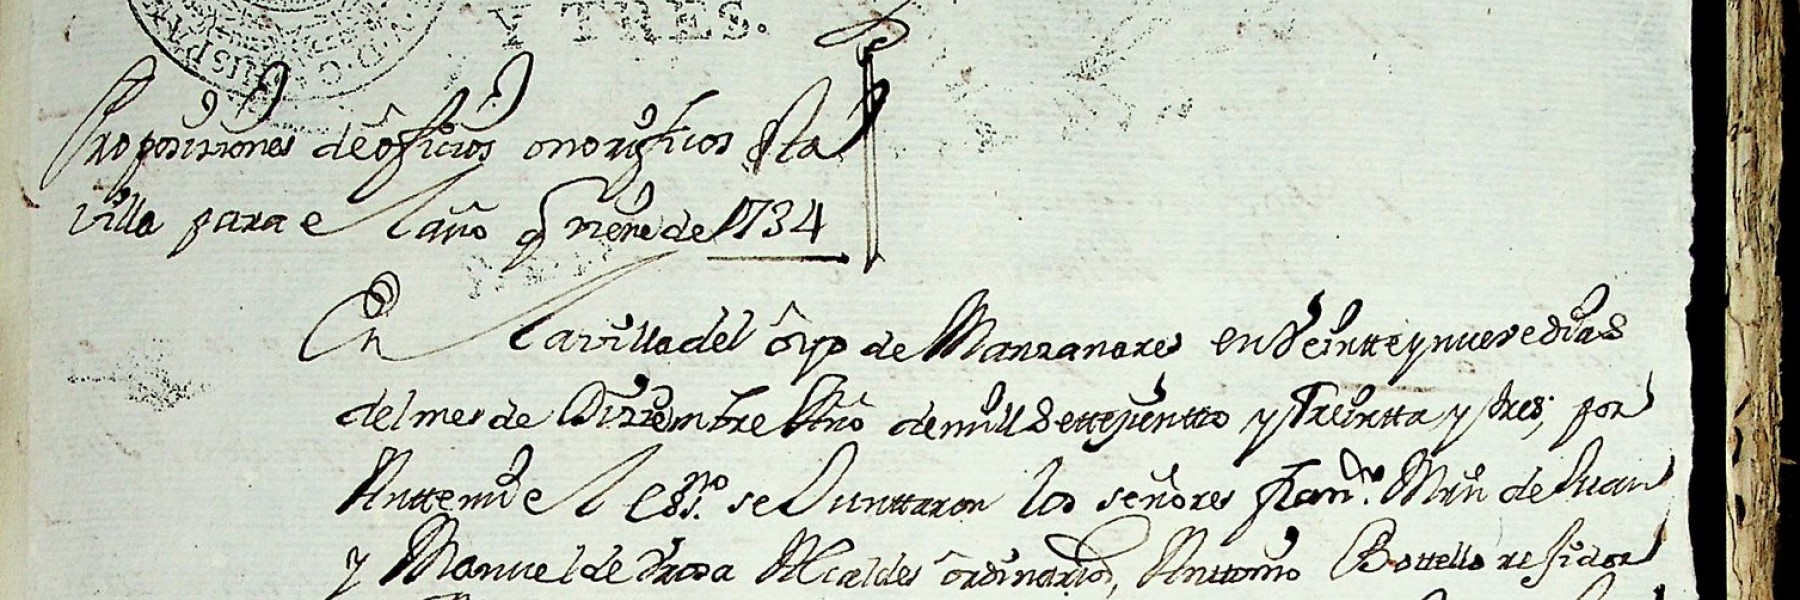 Y TRES.
HISPA D. G.
Proposiziones de ofizios onorificos desta
villa para el año q viene de 1734
En la villa del oyo de Manzanares en Veintte y nueve dias
del mes de Diziembre Año de mill Settezientto y Treintta y tres, por
Antte mi el Essno. se Junttaron los señores Franco. Mrn de Juan
y Manuel de Alcaldes ordinarios, Anttonio Bottello rexidor